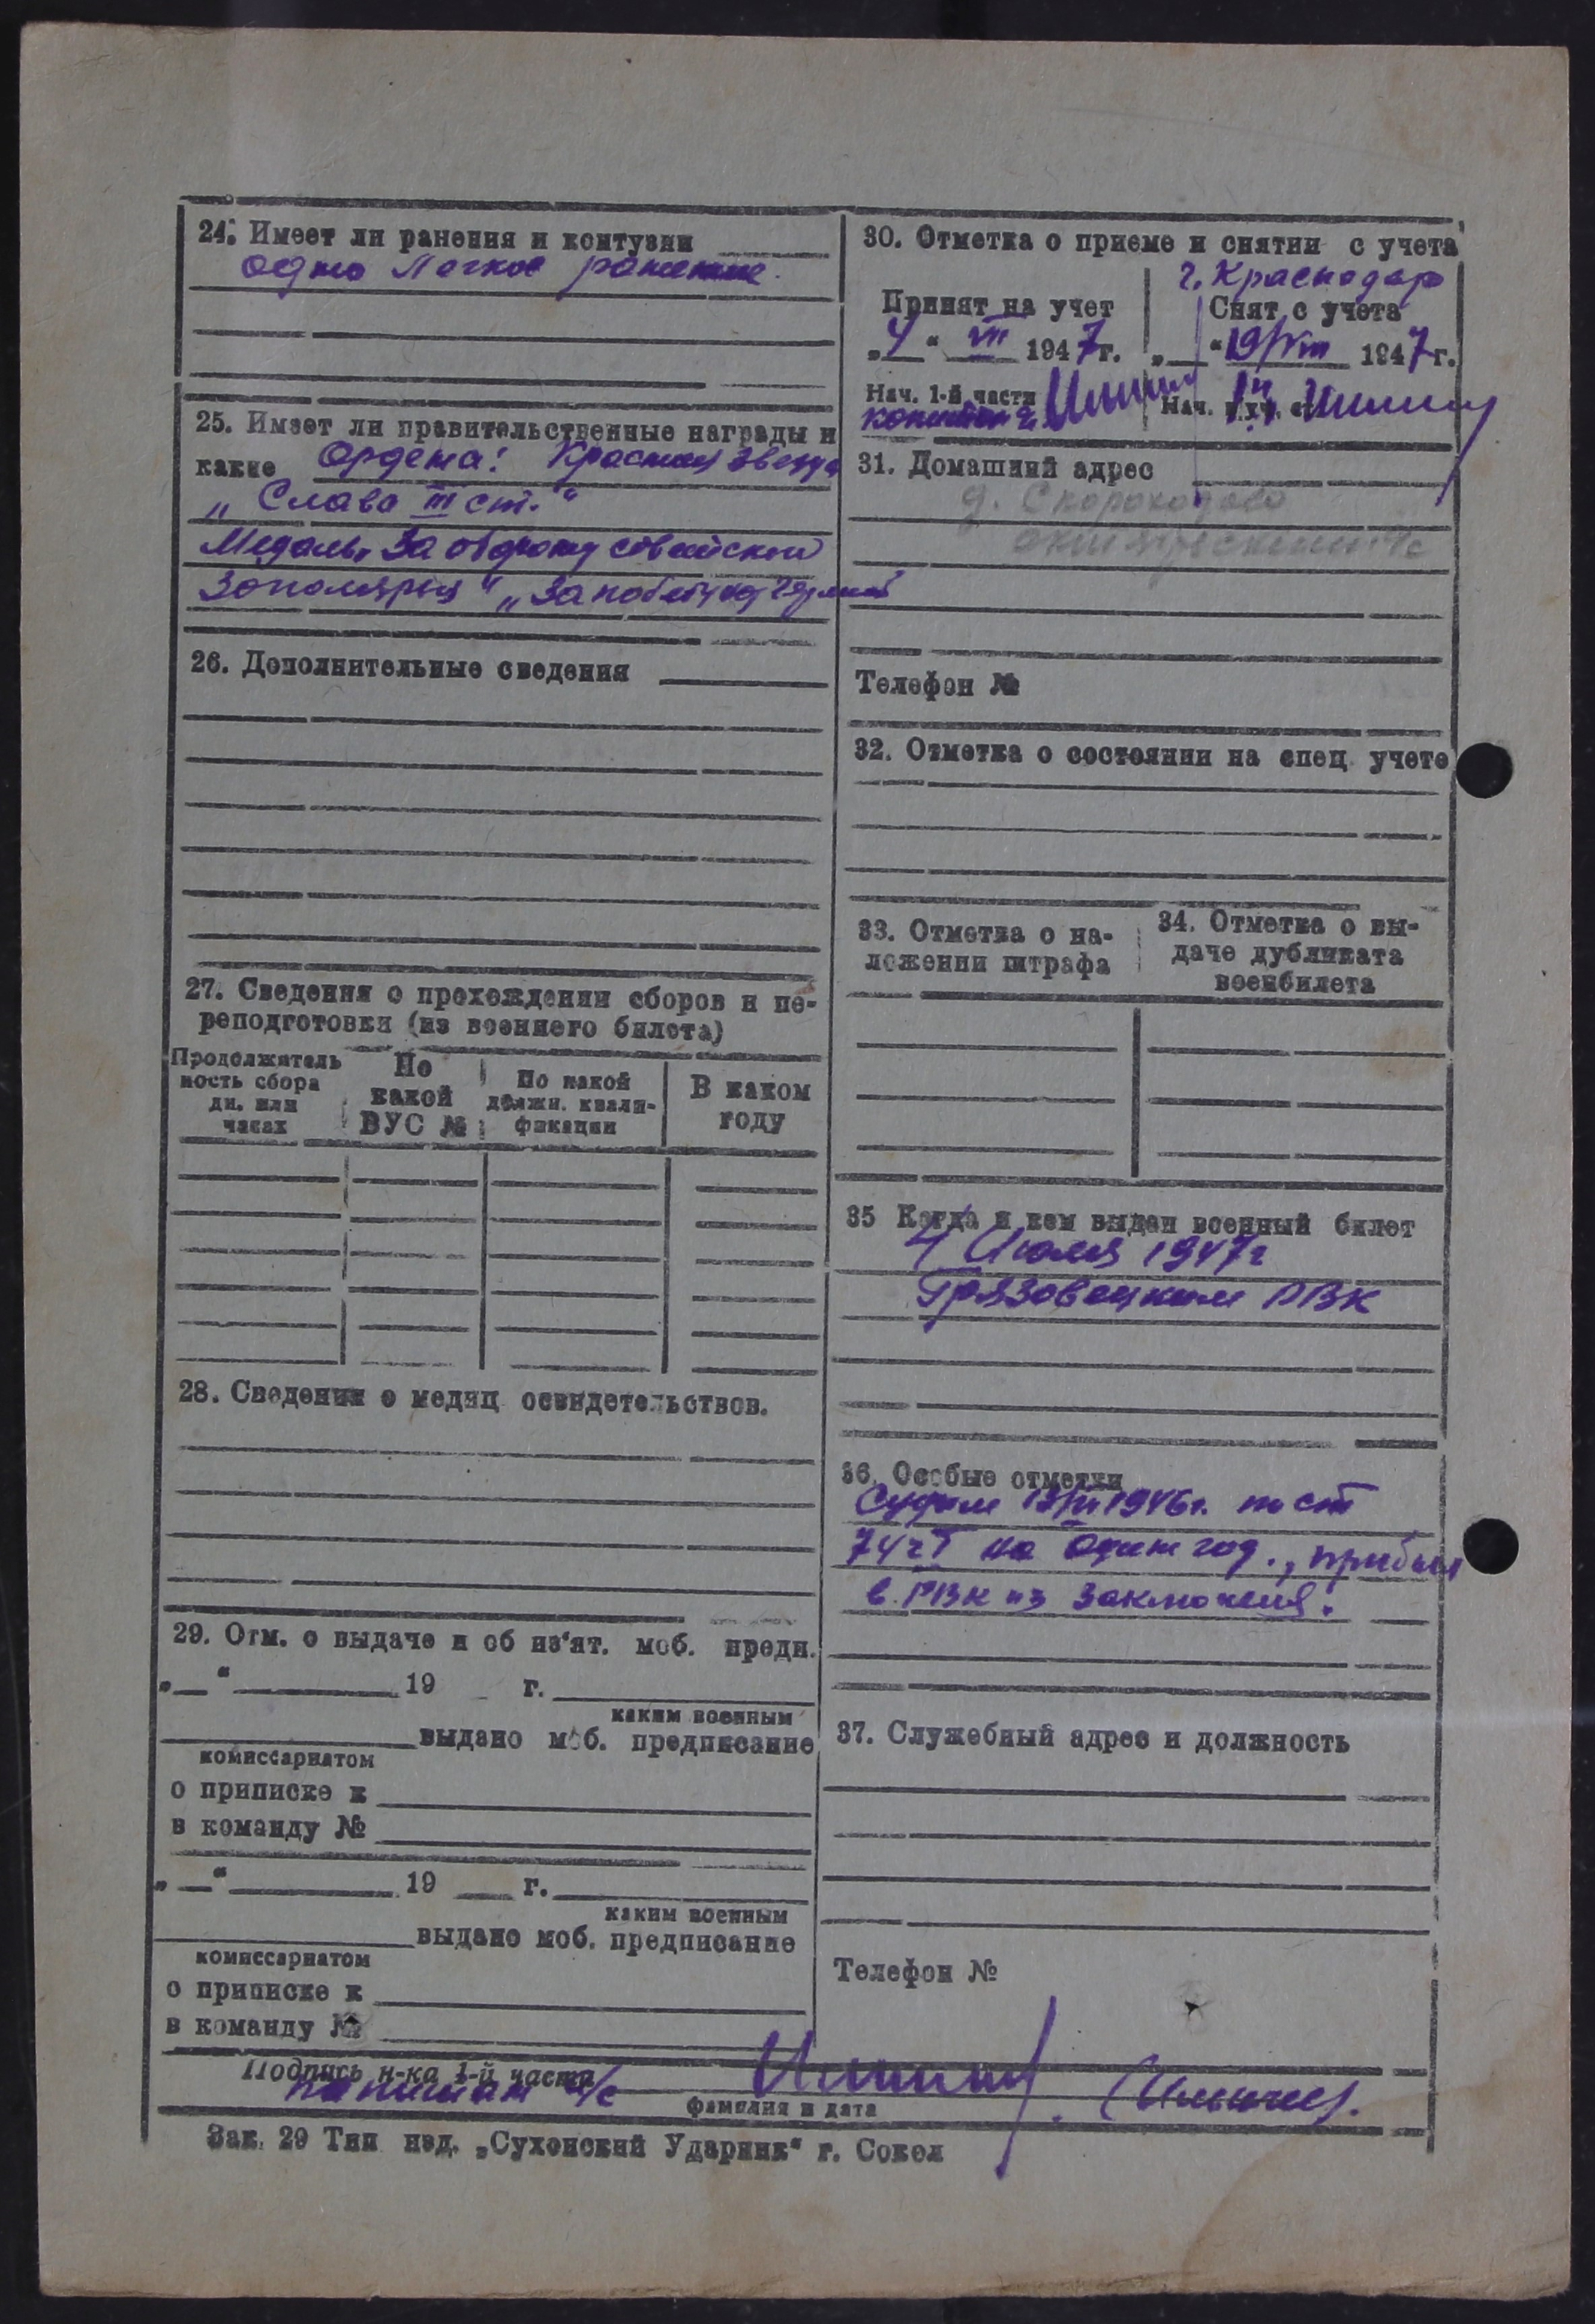 24. Имеет ли ранения и контузии
одно легкое ранение.
25. Имеет ли правительственные награды и
какие Ордена: Красная звезда
„Слава III ст."
Медаль „За оборону советской
Заполярья" „За победу над Германией
26. Дополнительные сведения
27. Сведения о прохождении сборов и пе-
реподготовки (из военного билета)
Продолжитель
ность сбора
дн. или
часах
По
какой
ВУС №
По какой
должн. квали-
фикации
В каком
году
28. Сведения о медиц. освидетельствов.
29. Отм. о выдаче и об из'ят. моб. предп.
„ " 19 г.
каким военным
выдано моб. предписание
комиссариатом
о приписке к
в команду №
„ " 19 г.
каким военным
выдано моб. предписание
комиссариатом
о приписке к
в команду №
30. Отметка о приеме и снятии с учета
г. Краснодар
Принят на учет
„4" VII 1947г.
Нач. 1-й части
капитан
Снят с учета
„ " 19/VIII 1947г.
Нач.
31. Домашний адрес
д. Скороходово
Телефон №
32. Отметка о состоянии на спец. учете
33. Отметка о на-
ложении штрафа
34. Отметка о вы-
даче дубликата
военбилета
35 Когда и кем выдан военный билет
4 Июля 1947г
Грязовецким РВК
36. Особые отметки
Судим 1946г. по ст
74 ч I на один год., прибыл
в РВК из заключения.
37. Служебный адрес и должность
Телефон №
Подпись н-ка 1-й части
капитан а/с
фамилия и дата
Зак. 29 Тип изд. „Сухонский Ударник" г. Сокол